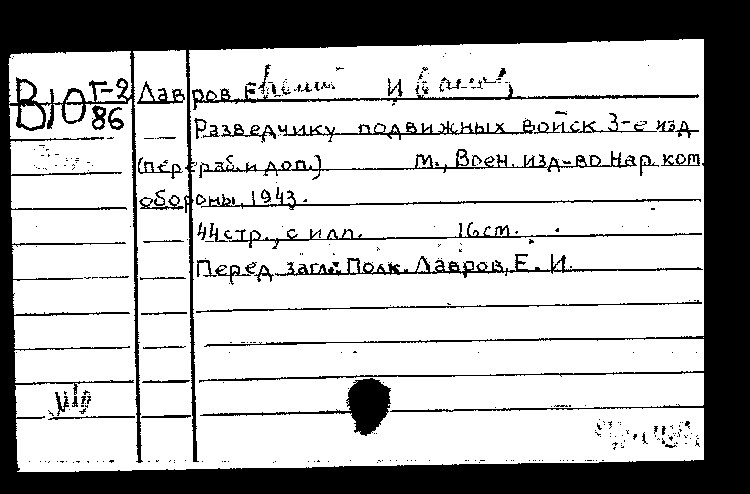 В10 Г-2 86
Лавров, Е И
Разведчику подвижных войск 3-е изд
(перераб. и доп.) М., Воен. изд-во Нар. ком.
обороны, 1943.
44 стр., с илл. 16 см.
Перед загл.: Полк. Лавров, Е. И.